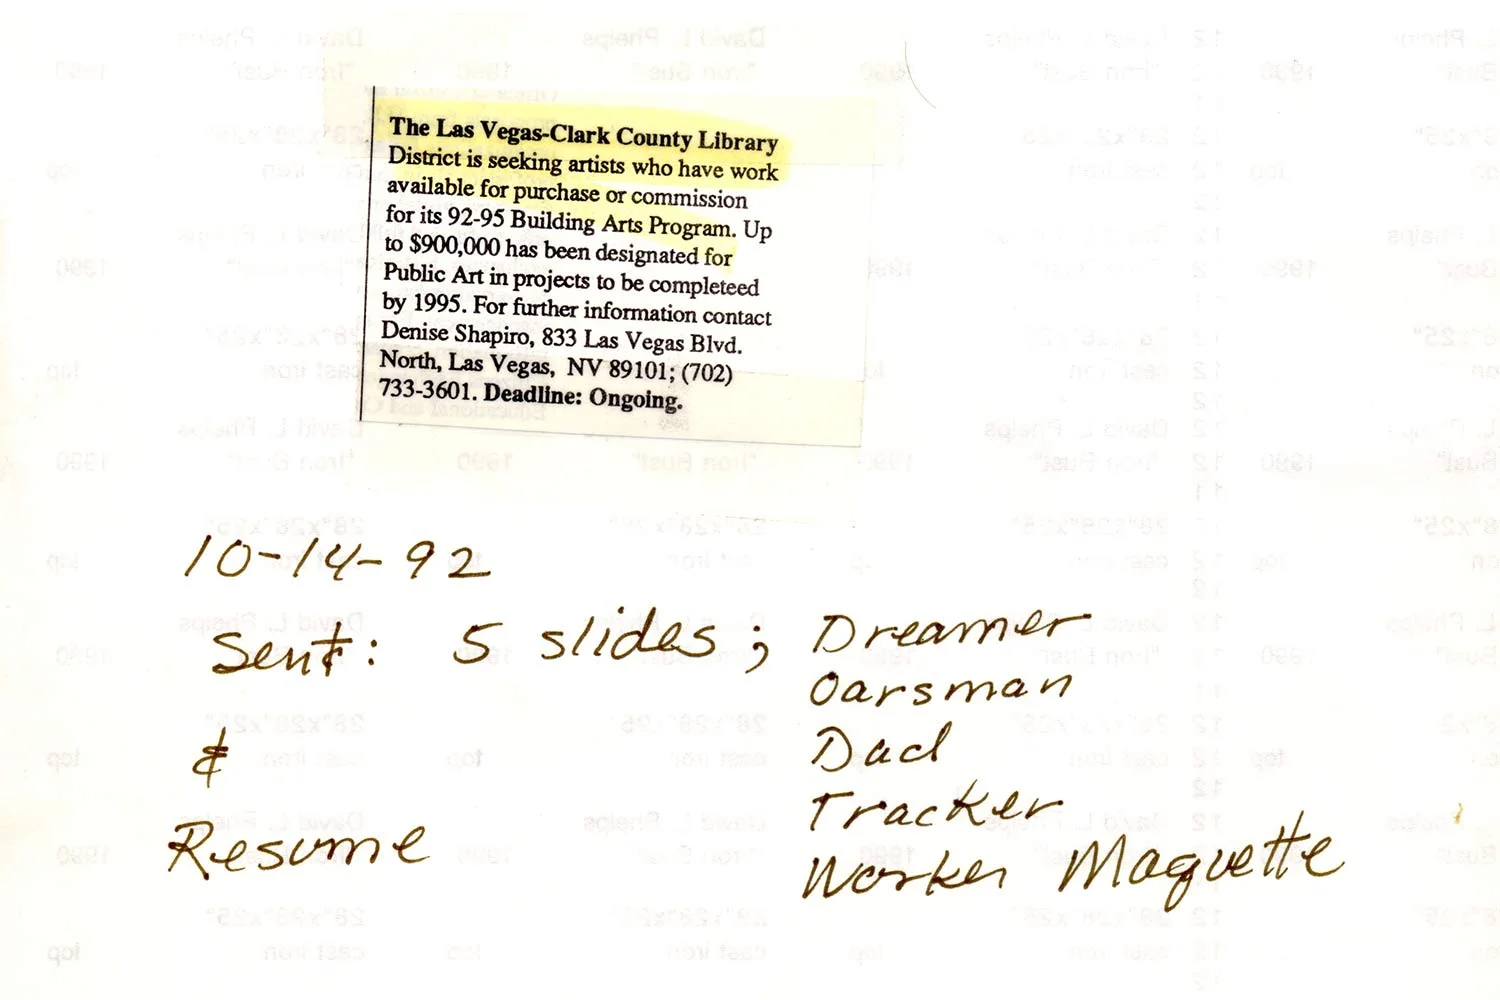 The Las Vegas-Clark County Library
District is seeking artists who have work
available for purchase or commission
for its 92-95 Building Arts Program. Up
to $900,000 has been designated for
Public Art in projects to be completeed
by 1995. For further information contact
Denise Shapiro, 833 Las Vegas Blvd.
North, Las Vegas, NV 89101; (702)
733-3601. Deadline: Ongoing.
10-14-92
Sent: 5 slides; Dreamer
Oarsman
& Dad
Tracker
Resume Worker Maquette